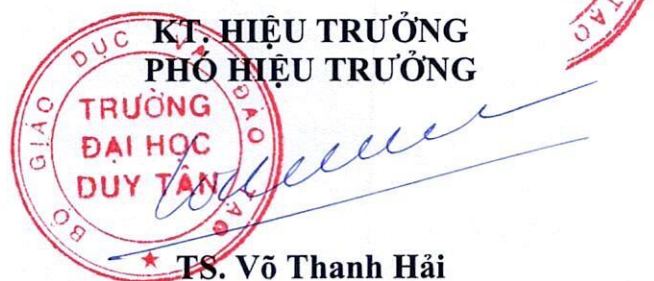 KT. HIỆU TRƯỞNG
PHÓ HIỆU TRƯỞNG
BỘ GIÁO DỤC VÀ ĐÀO TẠO
TRƯỜNG
ĐẠI HỌC
DUY TÂN
TS. Võ Thanh Hải